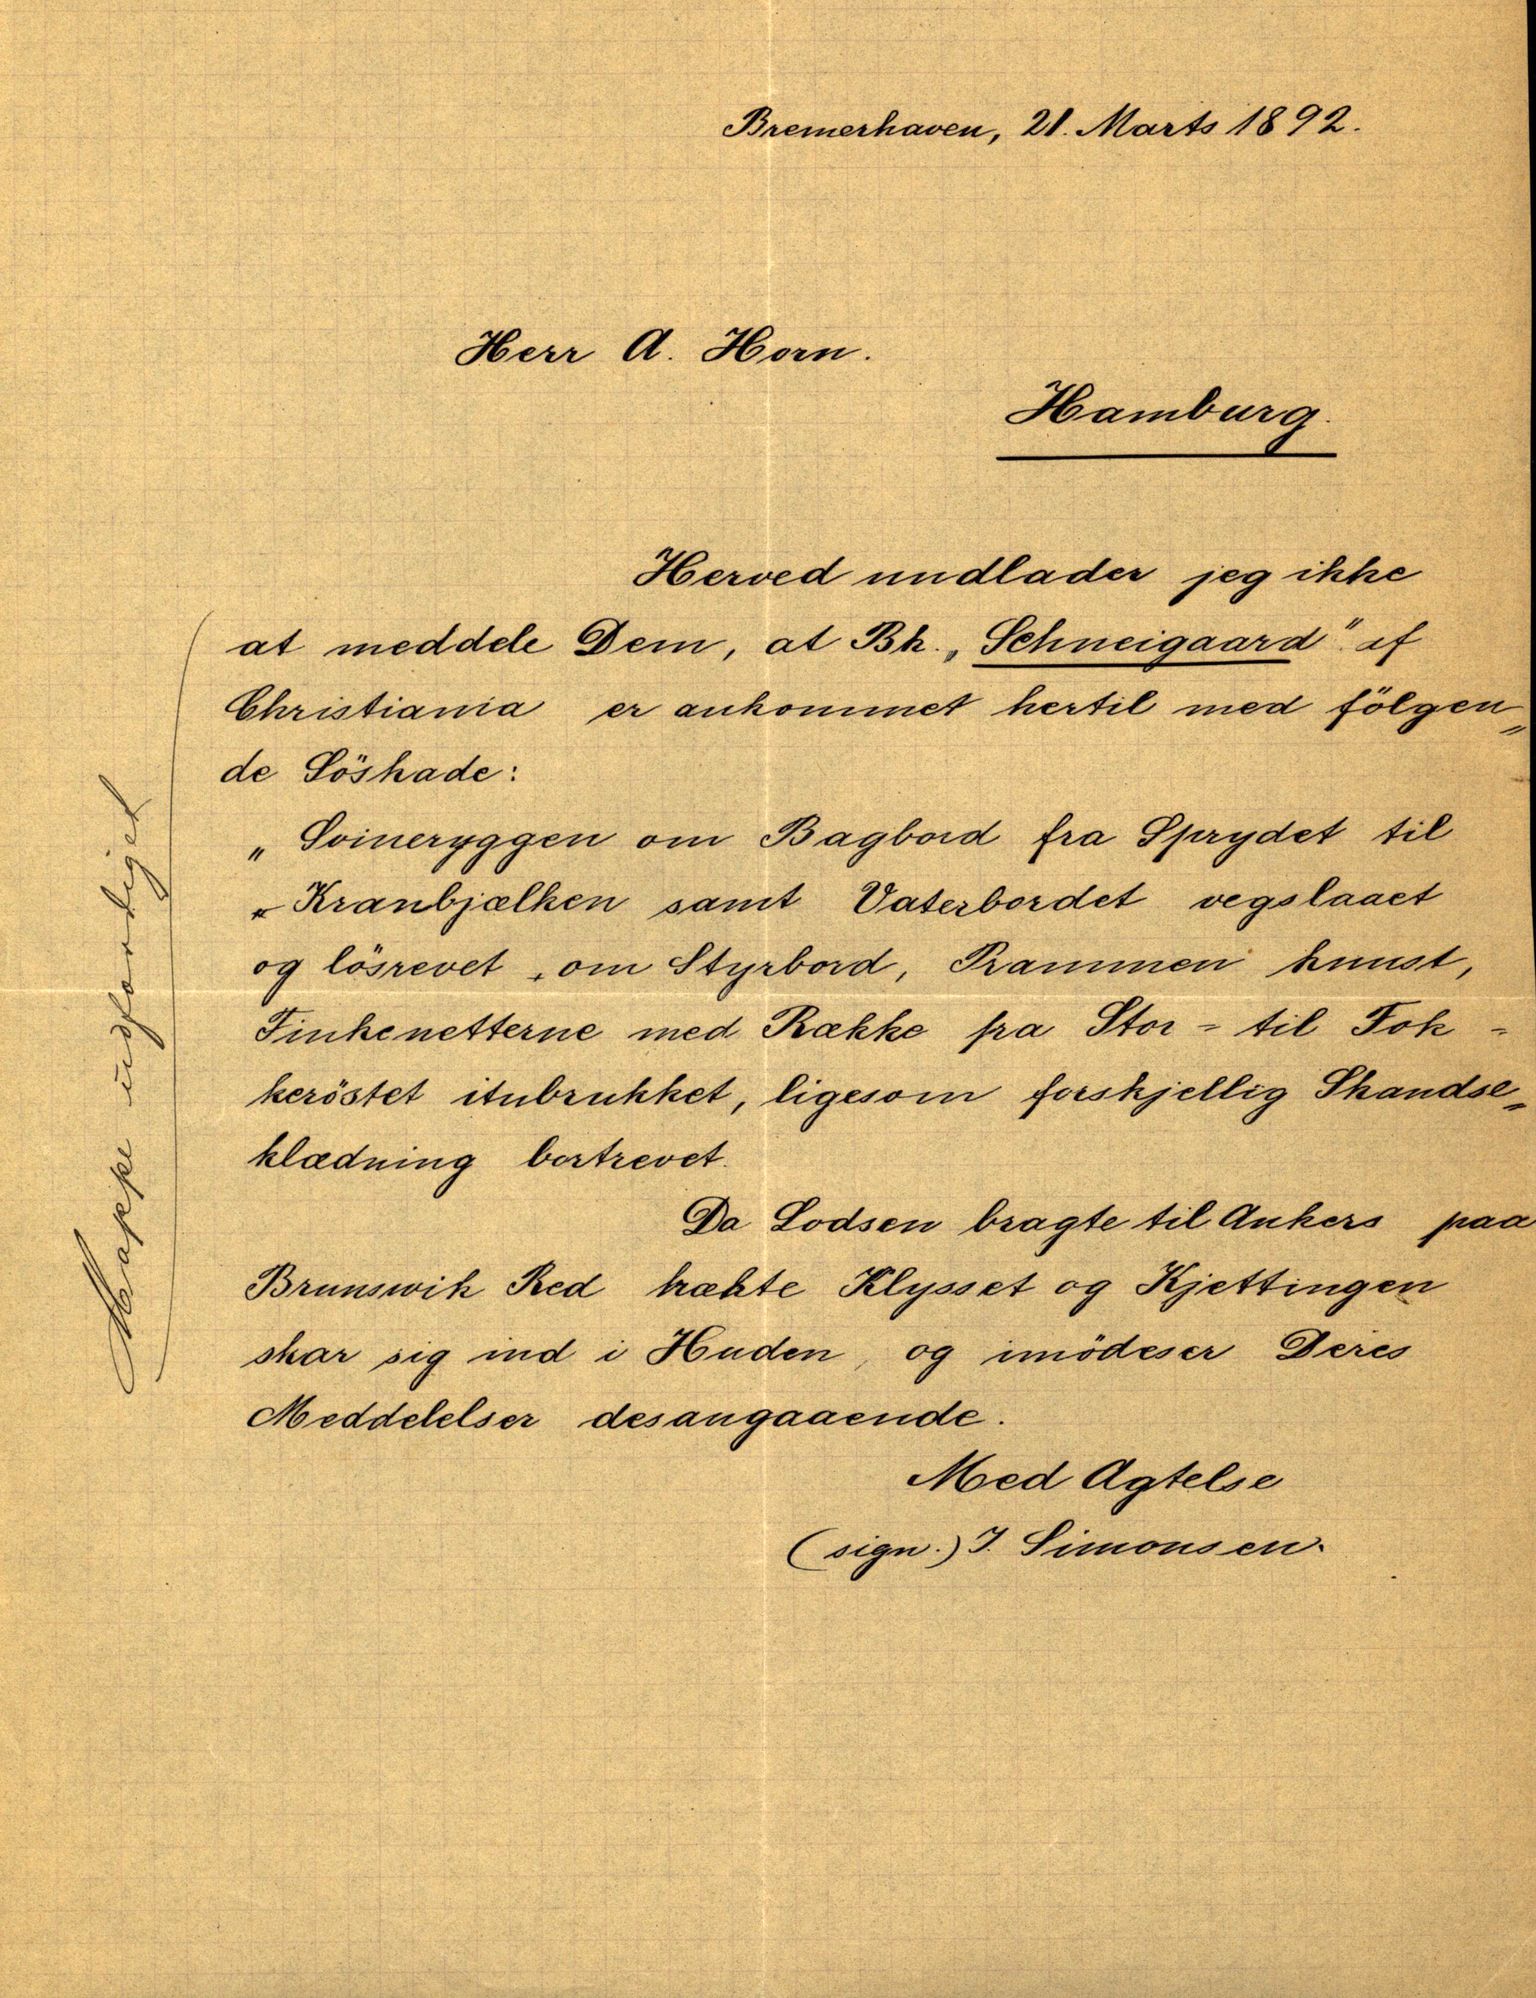 Bremerhaven, 21. Marts 1892.
Herr A. Horn.
Hamburg.
Herved undlader jeg ikke
at meddele Dem, at Bk. „Schneigaard" af
Christiania er ankommet hertil med fölgen„
de Söskade:
„ Svineryggen om Bagbord fra Sprydet til
„ Kranbjælken samt Vaterbordet vegslaaet
og lösrevet, om Styrbord, Prammen knust,
Finkenetterne med Række fra Stor- til Fok-
keröstet itubrukket, ligesom forskjellig Skandse„
klædning bortrevet.
Da Lodsen bragte til Ankers paa
Brunswik Red brækte Klysset og Kjettingen
skar sig ind i Huden, og imödeser Deres
Meddelelser desangaaende.
Med Agtelse
(sign.) J. Simonsen.
Mappe udfærdiget